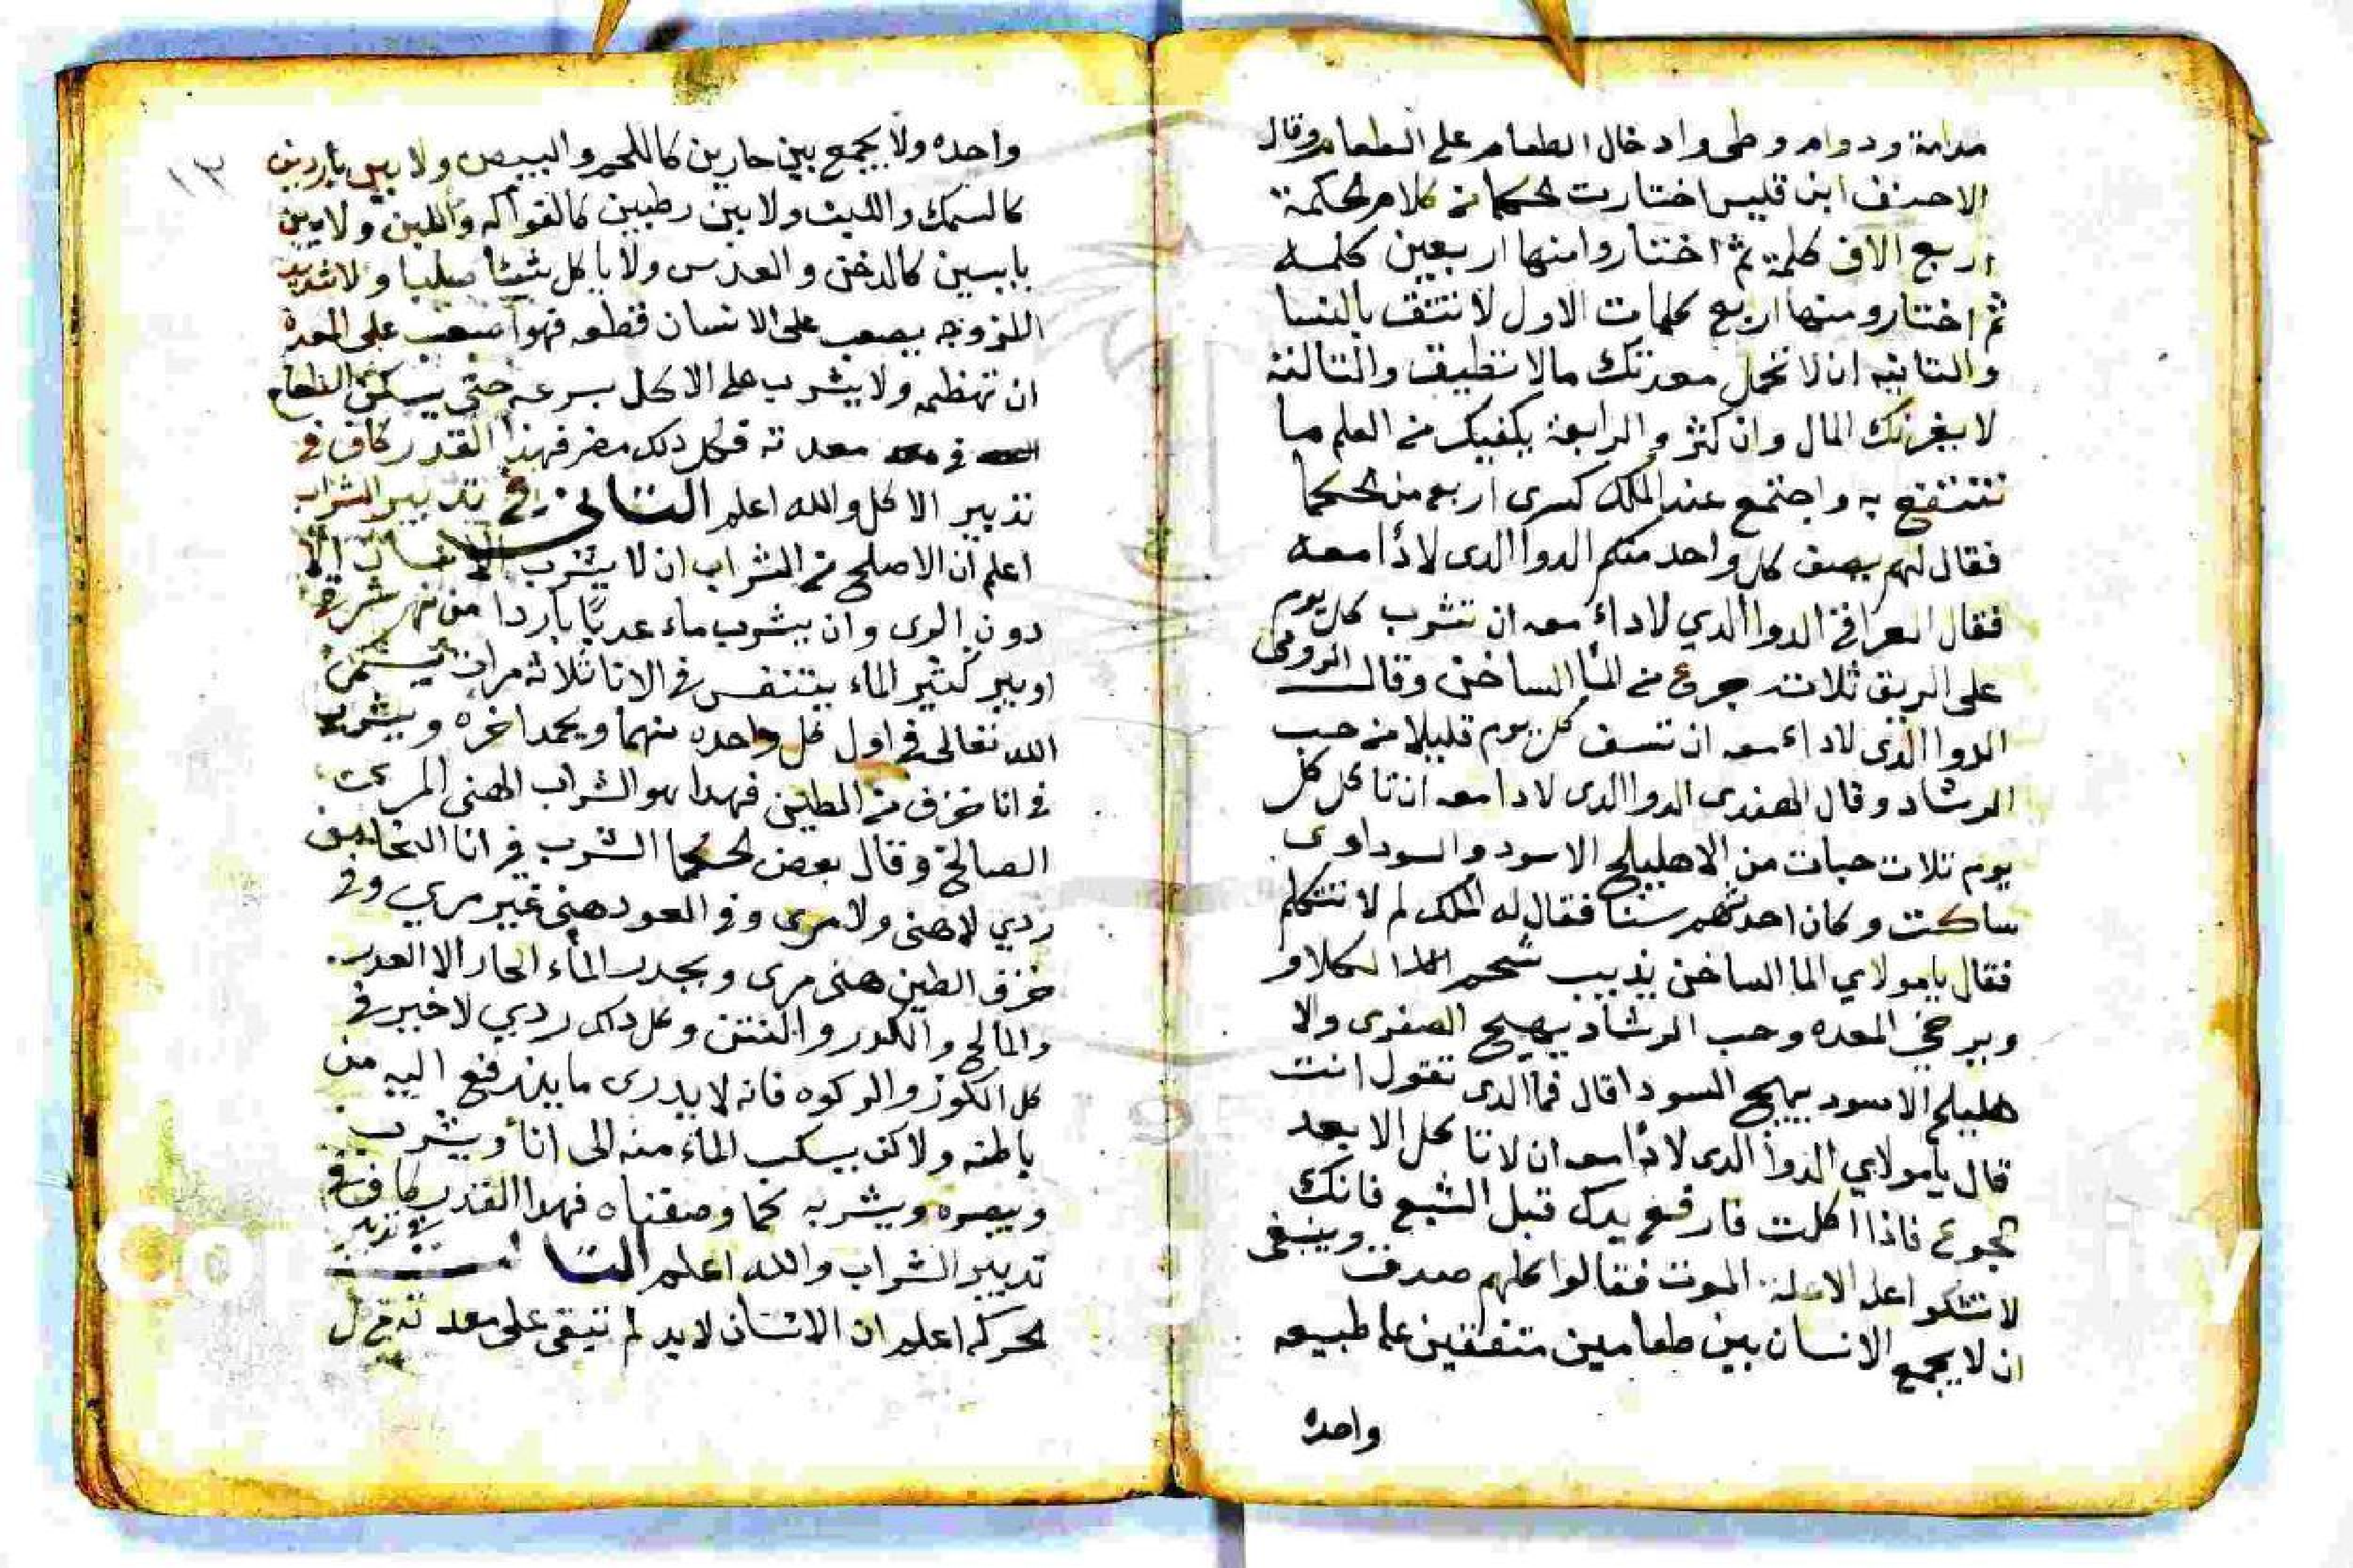 مدامة ودوام وطي وادخال الطعام على الطعام وقال
الاحنف ابن قليس اختارت الحكما من كلام الحكمة
اربع الاف كلمة ثم اختاروا منها اربعين كلمه
ثم اختارو منها اربع كلمات الاول لا تثق بالنسا
والتانيه ان لا تحمل معدتك مالا تطيق والتالثة
لا يغرنك المال وان كثر والرابعة يكفيك من العلم ما
تنتفع به واجتمع عند الملك كسرى اربعه من الحكما
فقال لهم يصف كل واحد منكم الدوا الدى لا دا معه
فقال العراقي الدوا الدي لا داء معه ان تشرب كل يوم
على الريق ثلات جرع من الما الساخن وقال الرومى
الدوا الذى لا داء معه ان تسف كل يوم قليلا من حب
الرشاد وقال الهندى الدوا الدى لا دا معه ان تاكل كل
يوم تلات حبات من الاهليلج الاسود والسوداوى
ساكت وكان احدثهم سنا فقال له الملك لم لا تتكلم
فقال يا مولاي الما الساخن يذيب شحم الكلا و
ويرخي المعده وحب الرشاد يهيج الصفرى والا
هليلج الاسود يهيج السودا قال فما الدى تقول انت
قال يا مولاي الدوا الدى لا دا معه ان لا تاكل الا بعد
الجوع فاذا اكلت فارفع يدك قبل الشبع فانك
لا تشكوا علة الا علة الموت فقالوا كلهم صدق وينبغى
ان لا يجمع الانسان بين طعامين متفقين على طبيعه
واحده
١٣
واحده ولا يجمع بين حارين كاللحم والبيض ولا بين باردين
كالسمك واللبن ولا بين رطبين كالفواكه واللبن ولا بين
يابسين كالدخن والعدس ولا ياكل شئا صلبا ولا شديد
اللزوجه يصعب على الانسان قطعه فهو اصعب على المعدة
ان تهظمه ولا يشرب على الاكل بسرعه حتى يسكن الطعام
في معدته فكل دلك مضر فهذا القدر كاف في
تدبير الاكل والله اعلم التانى في تدبير الشراب
اعلم ان الاصلح من الشراب ان لا يشرب الانسان الا
دون الرى وان يشرب ماء عدبا باردا من نهر شرقي
او بير كثير الماء يتنفس في الانا ثلاثه مرات يسمى
الله تعالى في اول كل واحده منهما ويحمد اخره ويشرب
في انا خزف من الطين فهدا هو الشراب الهنى المرى
الصالح وقال بعض الحكما الشرب في انا النحاس
ردي لا هنى ولا مرى وفي العود هنى غير مري وفي
خزف الطين هنى مرى ويجدر الماء الحار الا العدب
والمالح والكدر والنتن وكل داك ردي لا خير في
كل الكوز والركوه فانه لا يدرى ما يندفع اليه من
باطنه ولاكن يسكب الماء منه الى انا ويشرب
ويبصره ويشربه كما وصفناه فهدا القدر كاف في
تدبير الشراب والله اعلم التالت في تدبير
الحركه اعلم ان الانسان لابد لم تبقى على معدته